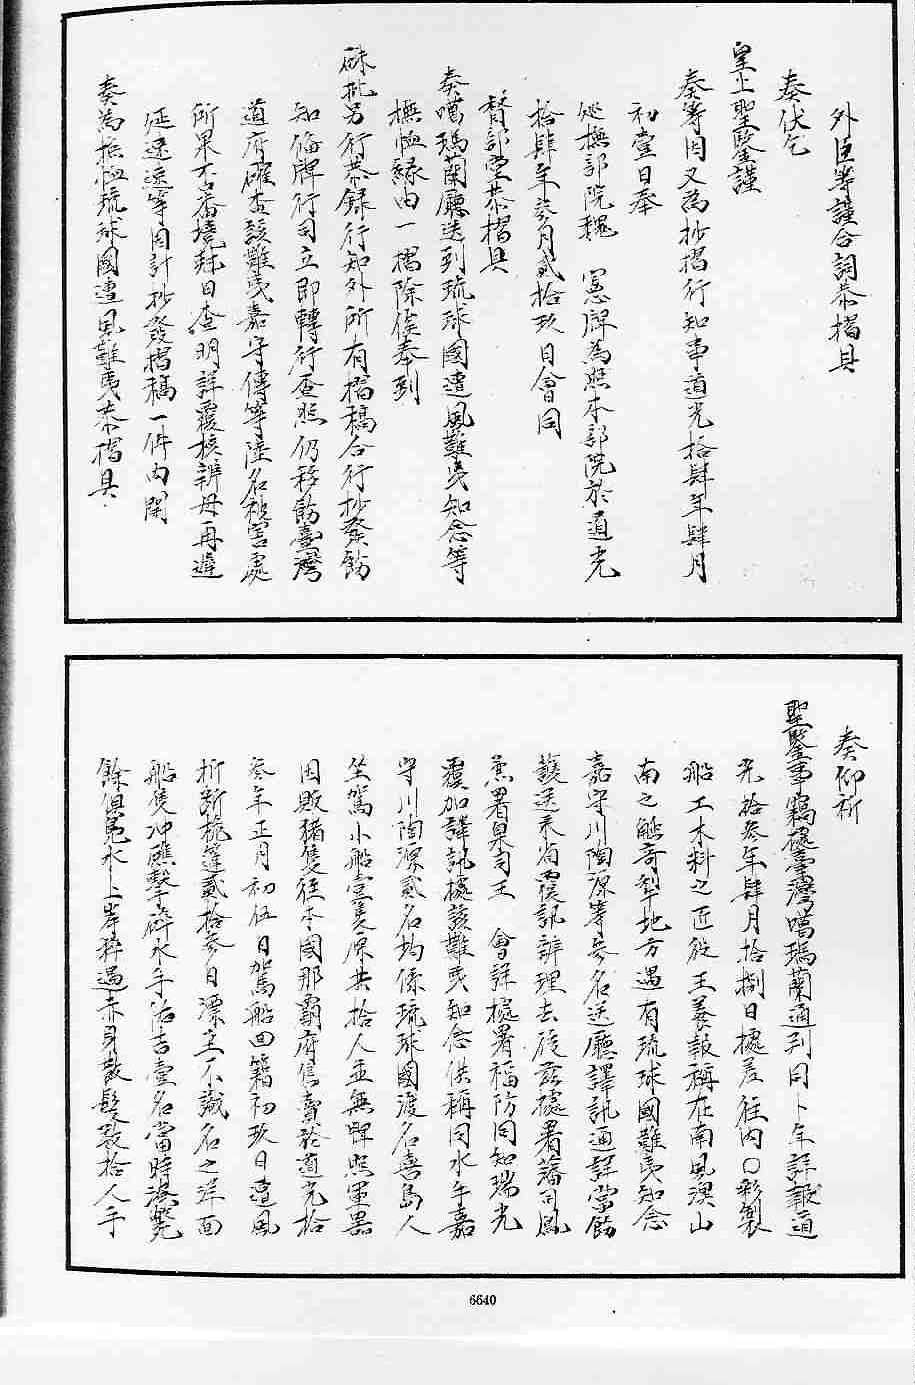 外臣等謹合詞恭摺具
奏伏乞
皇上聖鑒謹
奏等因又為抄摺行知事道光拾肆年肆月
初壹日奉
處撫部院魏 憲牌為照本部院於道光
拾肆年叁月貳拾玖日會同
督部堂恭摺具
奏噶瑪蘭廳送到琉球國遭風難夷知念等
撫恤緣由一摺除俟奉到
硃批另行恭錄行知外所有摺稿合行抄發飭
知備牌行司立即轉行查照仍移飭臺灣
道府確查該難夷嘉守傳等陸名被害處
所果否番境尅日查明詳覆核辦毋再違
延速速等因計抄發摺稿一件內開
奏為撫恤琉球國遭風難夷恭摺具
奏仰祈
聖鑒事竊據臺灣噶瑪蘭通判同卜年詳報道
光拾叁年肆月拾捌日據差往內〇彩製
船工木料之匠從王養報稱在南風澳山
南之觥奇犁地方遇有琉球國難夷知念
嘉守川陶源等叁名送廳譯訊通詳當飭
護送來省覆訊辦理去後茲據署藩司鳳
兼署臬司王 會詳據署福防同知瑞光
覆加譯訊據該難夷知念供稱同水手嘉
守川陶源貳名均係琉球國渡名喜島人
坐駕小船壹隻原共拾人並無牌照軍器
因販豬隻往本國那霸府售賣於道光拾
叁年正月初伍日駕船回籍初玖日遭風
折斷桅篷貳拾叁日漂至不識名之洋面
船隻冲礁擊碎水手佑吉壹名當時淹斃
餘俱鳧水上岸猝遇赤身散髮數拾人手
6640